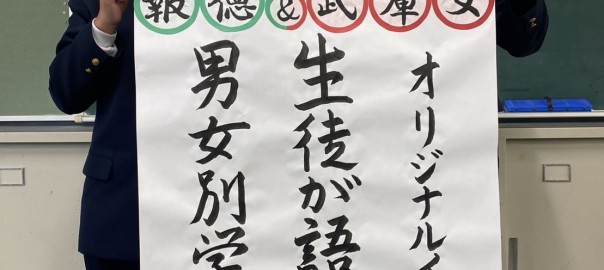 報徳&武庫女
オリジナルイ
生徒が語
男女別学